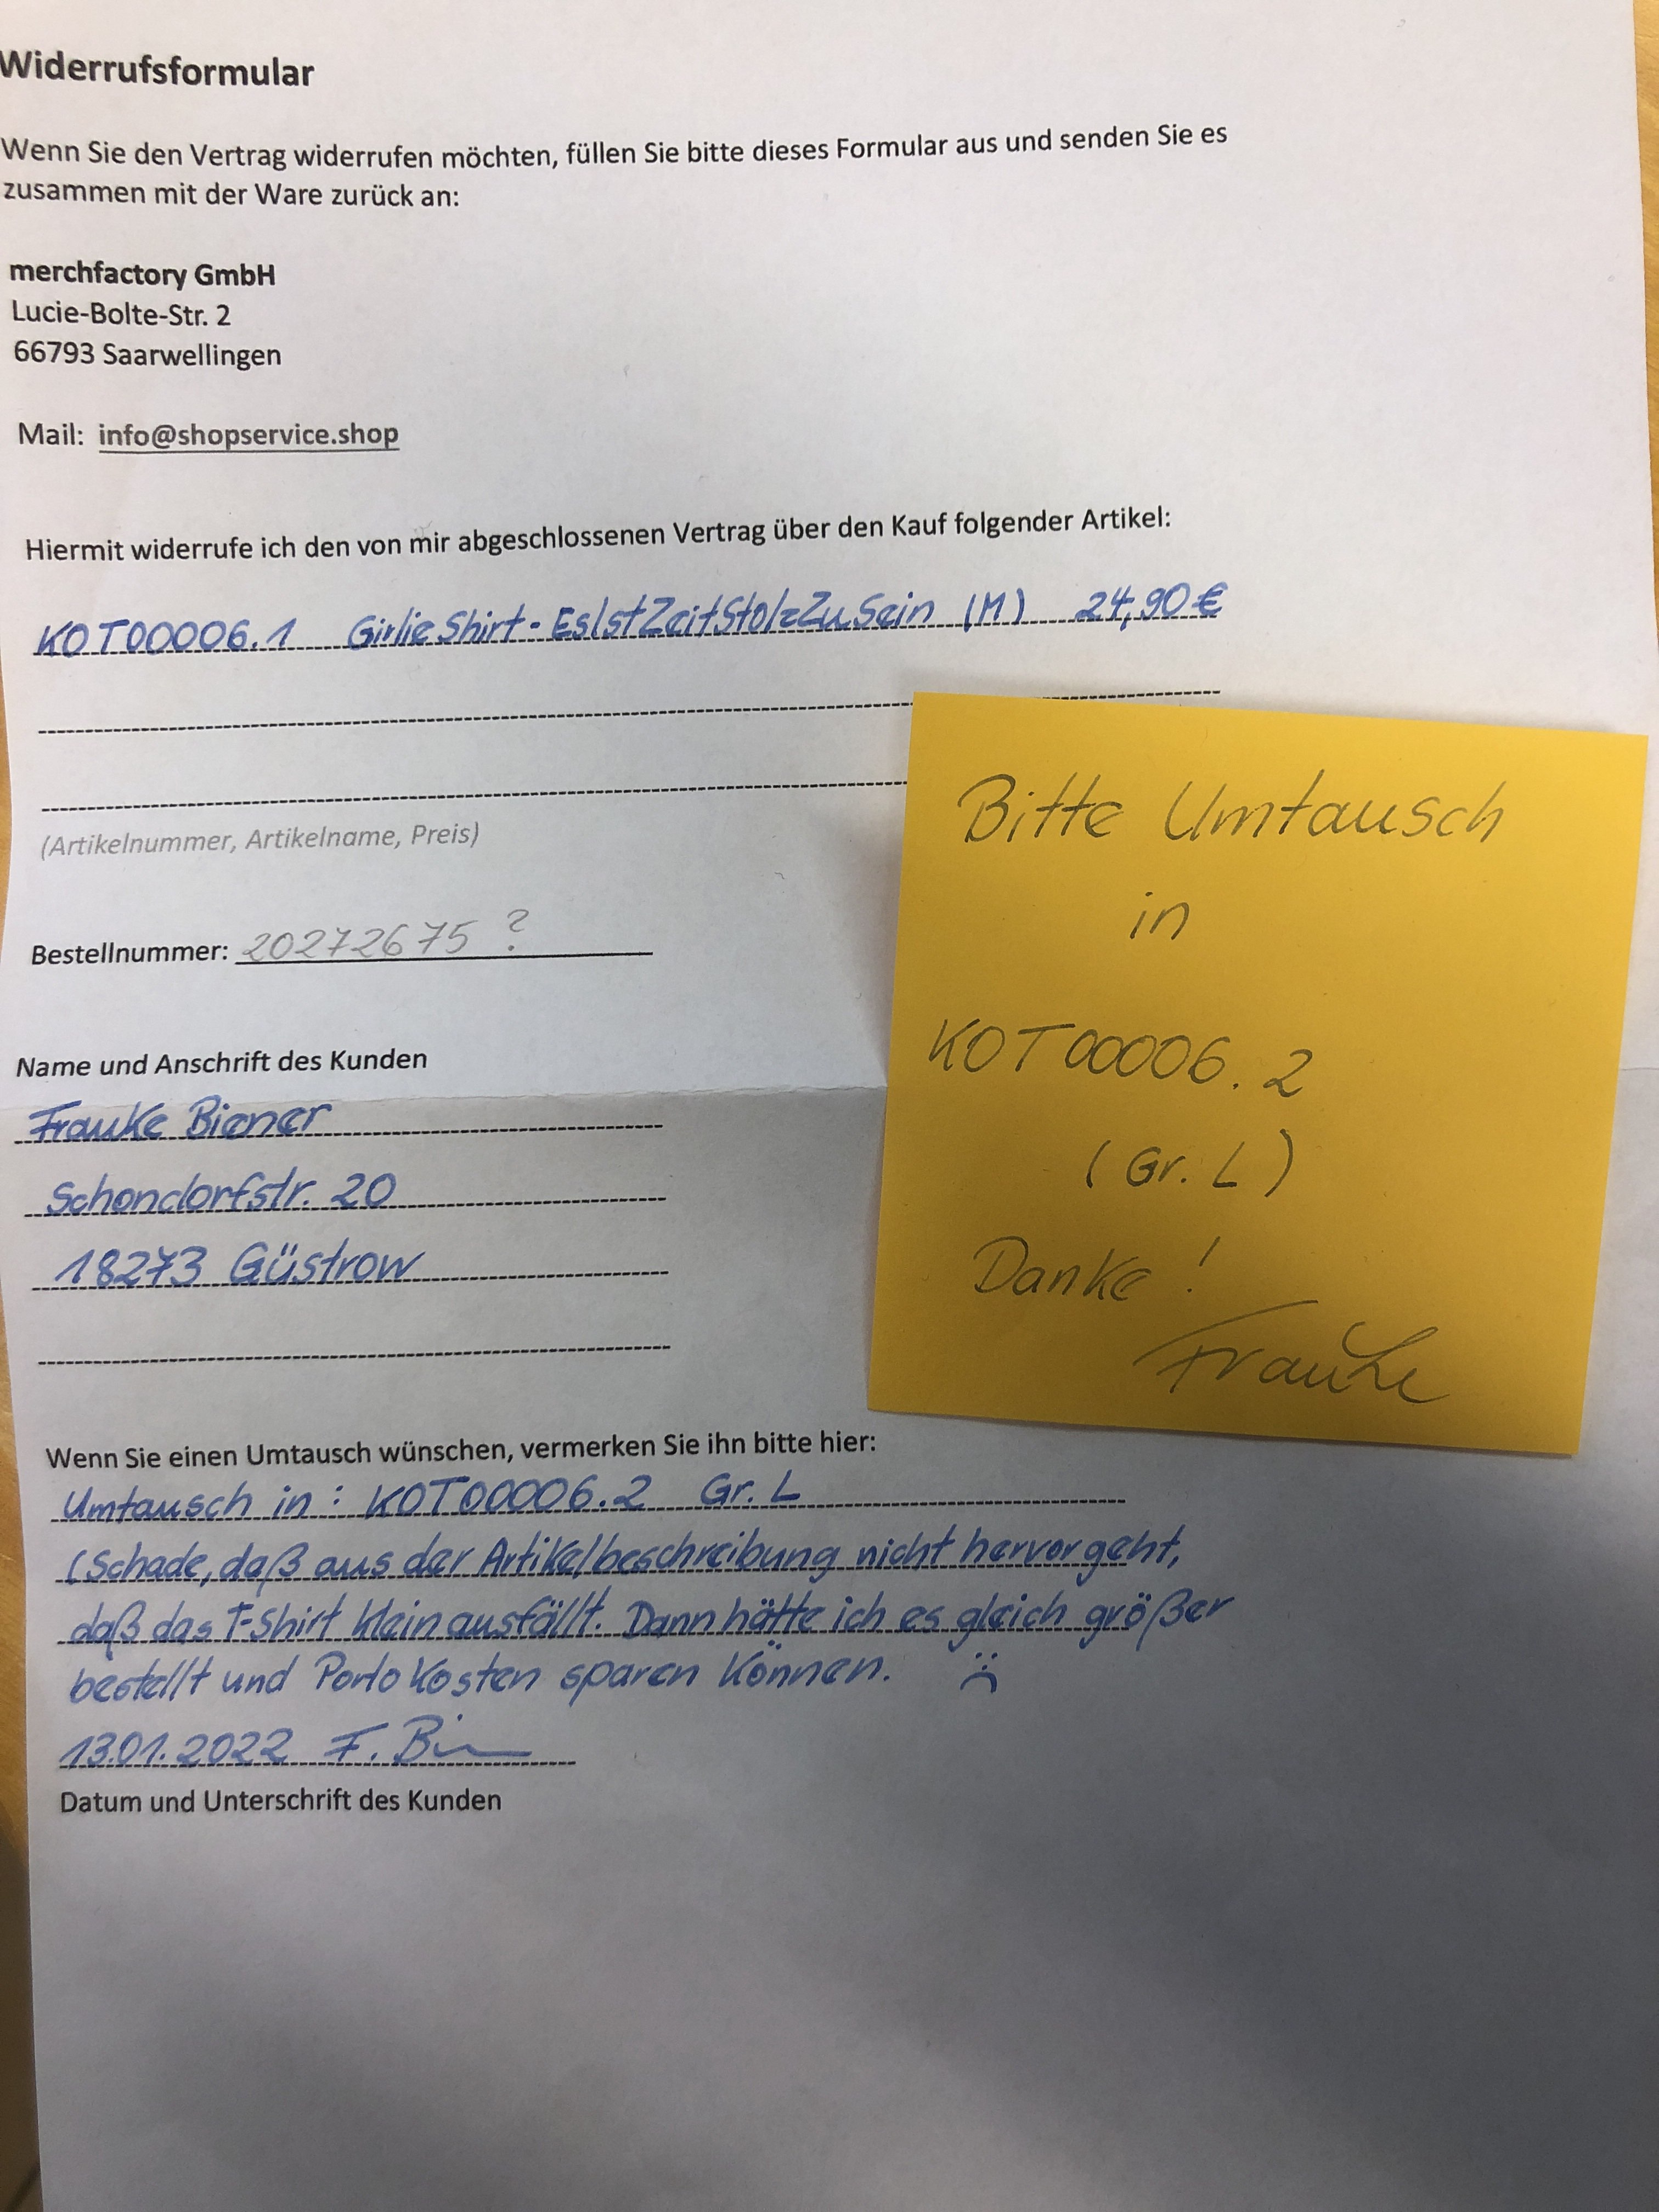 Widerrufsformular
Wenn Sie den Vertrag widerrufen möchten, füllen Sie bitte dieses Formular aus und senden Sie es
zusammen mit der Ware zurück an:
merchfactory GmbH
Lucie-Bolte-Str. 2
66793 Saarwellingen
Mail: info@shopservice.shop
Hiermit widerrufe ich den von mir abgeschlossenen Vertrag über den Kauf folgender Artikel:
KOT00006.1 GirlieShirt-EsIstZeitStolzZuSein (M) 24,90€
(Artikelnummer, Artikelname, Preis)
Bestellnummer: 20272675 ?
Name und Anschrift des Kunden
Frauke Biener
Schondorfstr. 20
18273 Güstrow
Bitte Umtausch
in
KOT00006.2
(Gr. L)
Danke!
Frauke
Wenn Sie einen Umtausch wünschen, vermerken Sie ihn bitte hier:
Umtausch in: KOT00006.2 Gr. L
(Schade, daß aus der Artikelbeschreibung nicht hervorgeht,
daß das T-Shirt klein ausfällt. Dann hätte ich es gleich größer
bestellt und Portokosten sparen können.
13.01.2022 F. Bi
Datum und Unterschrift des Kunden